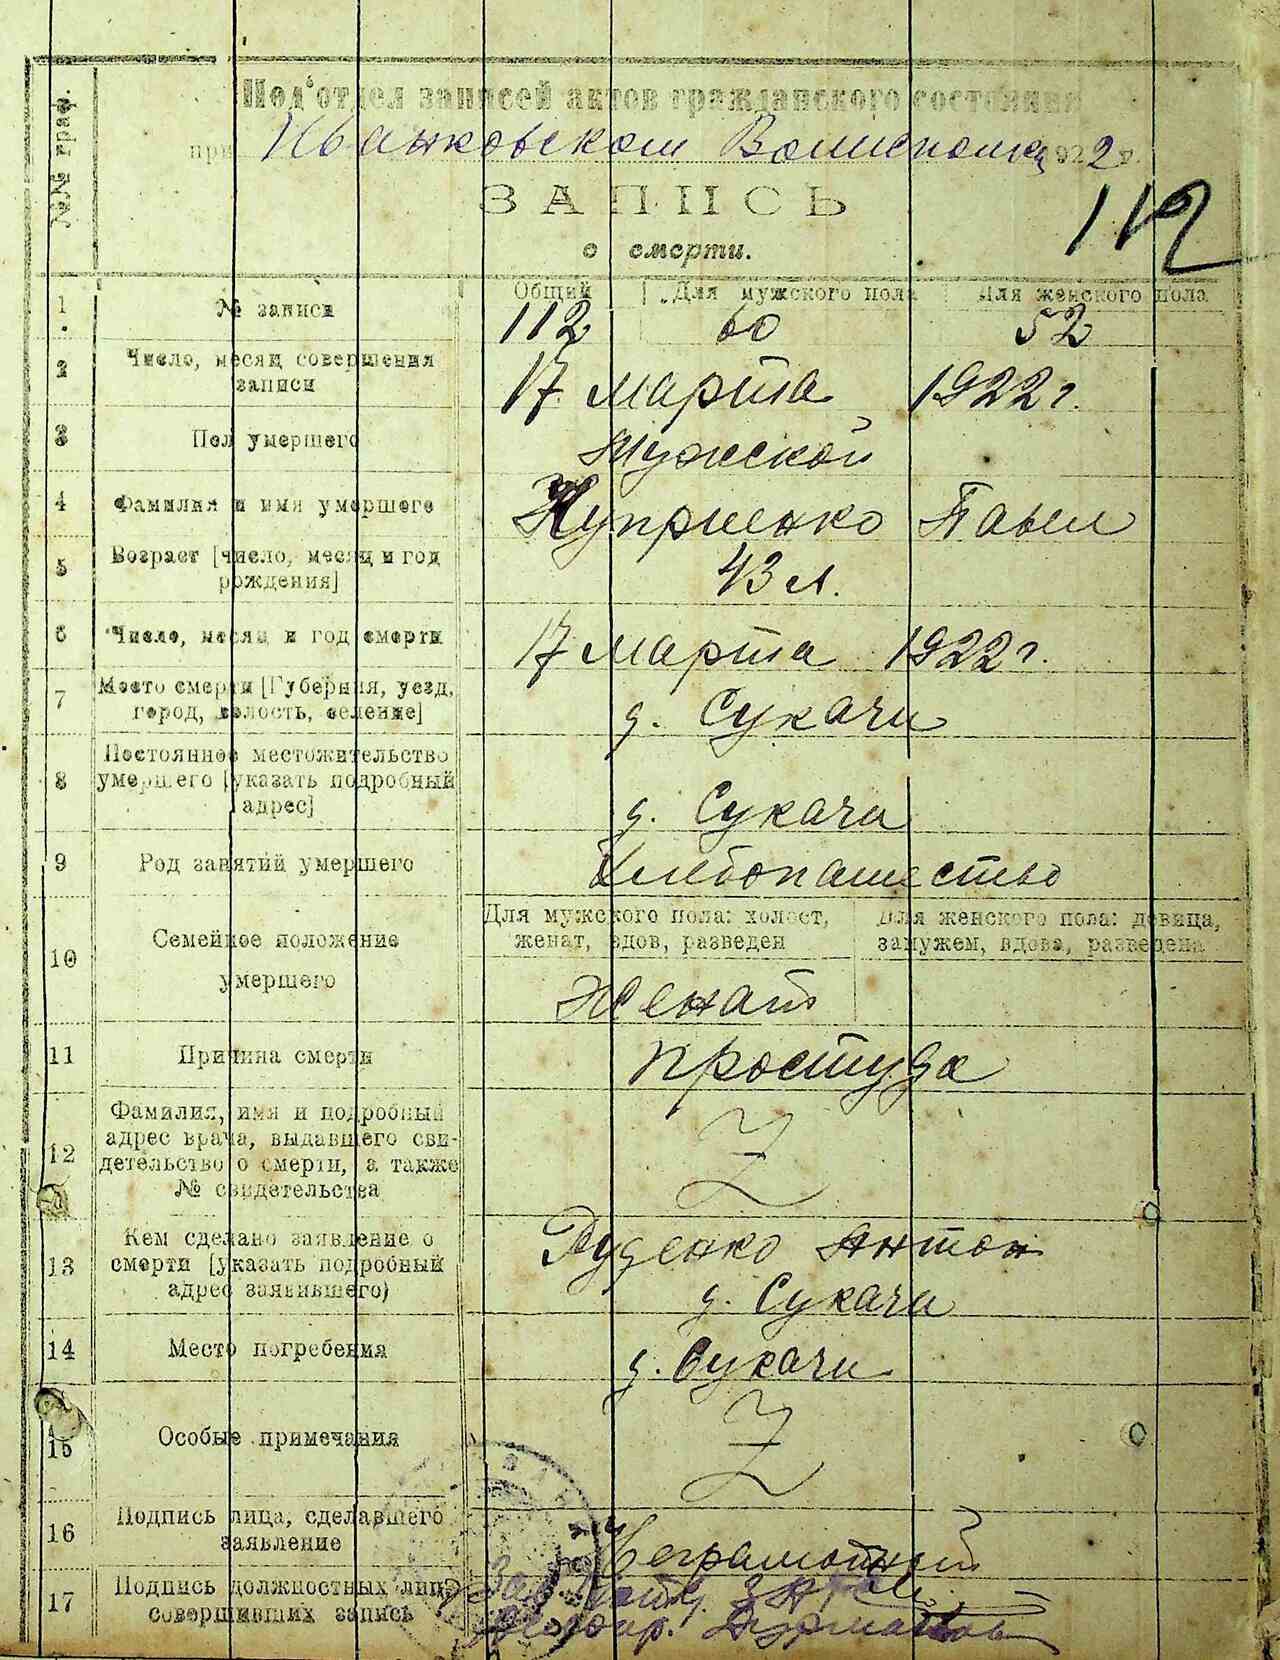 Под'отдел записей актов гражданского состояния
при Иванковском Волисполкоме 1922 г.
ЗАПИСЬ
о смерти.
112
№№ граф.
Общий Для мужского пола Для женского пола
1 № записи 112 60 52
2 Число, месяц совершения
записи
17 Марта 1922 г.
3 Пол умершего Мужской
4 Фамилия и имя умершего Куприенко Павел
5 Возраст [число, месяц и год
рождения]
43 л.
6 Число, месяц и год смерти 17 Марта 1922 г.
7 Место смерти [Губерния, уезд,
город, волость, селение]
д. Сукачи
8 Постоянное местожительство
умершего [указать подробный
адрес]
д. Сукачи
9 Род занятий умершего Хлебопашество
10 Семейное положение
умершего
Для мужского пола: холост,
женат, вдов, разведен
Для женского пола: девица,
замужем, вдова, разведена
Женат
11 Причина смерти простуда
12 Фамилия, имя и подробный
адрес врача, выдавшего сви-
детельство о смерти, а также
№ свидетельства
13 Кем сделано заявление о
смерти [указать подробный
адрес заявившего)
Руденко Антон
д. Сукачи
14 Место погребения д. Сукачи
15 Особые примечания
16 Подпись лица, сделавшего
заявление
Неграмотный
17 Подпись должностных лиц,
совершивших запись
Зав.